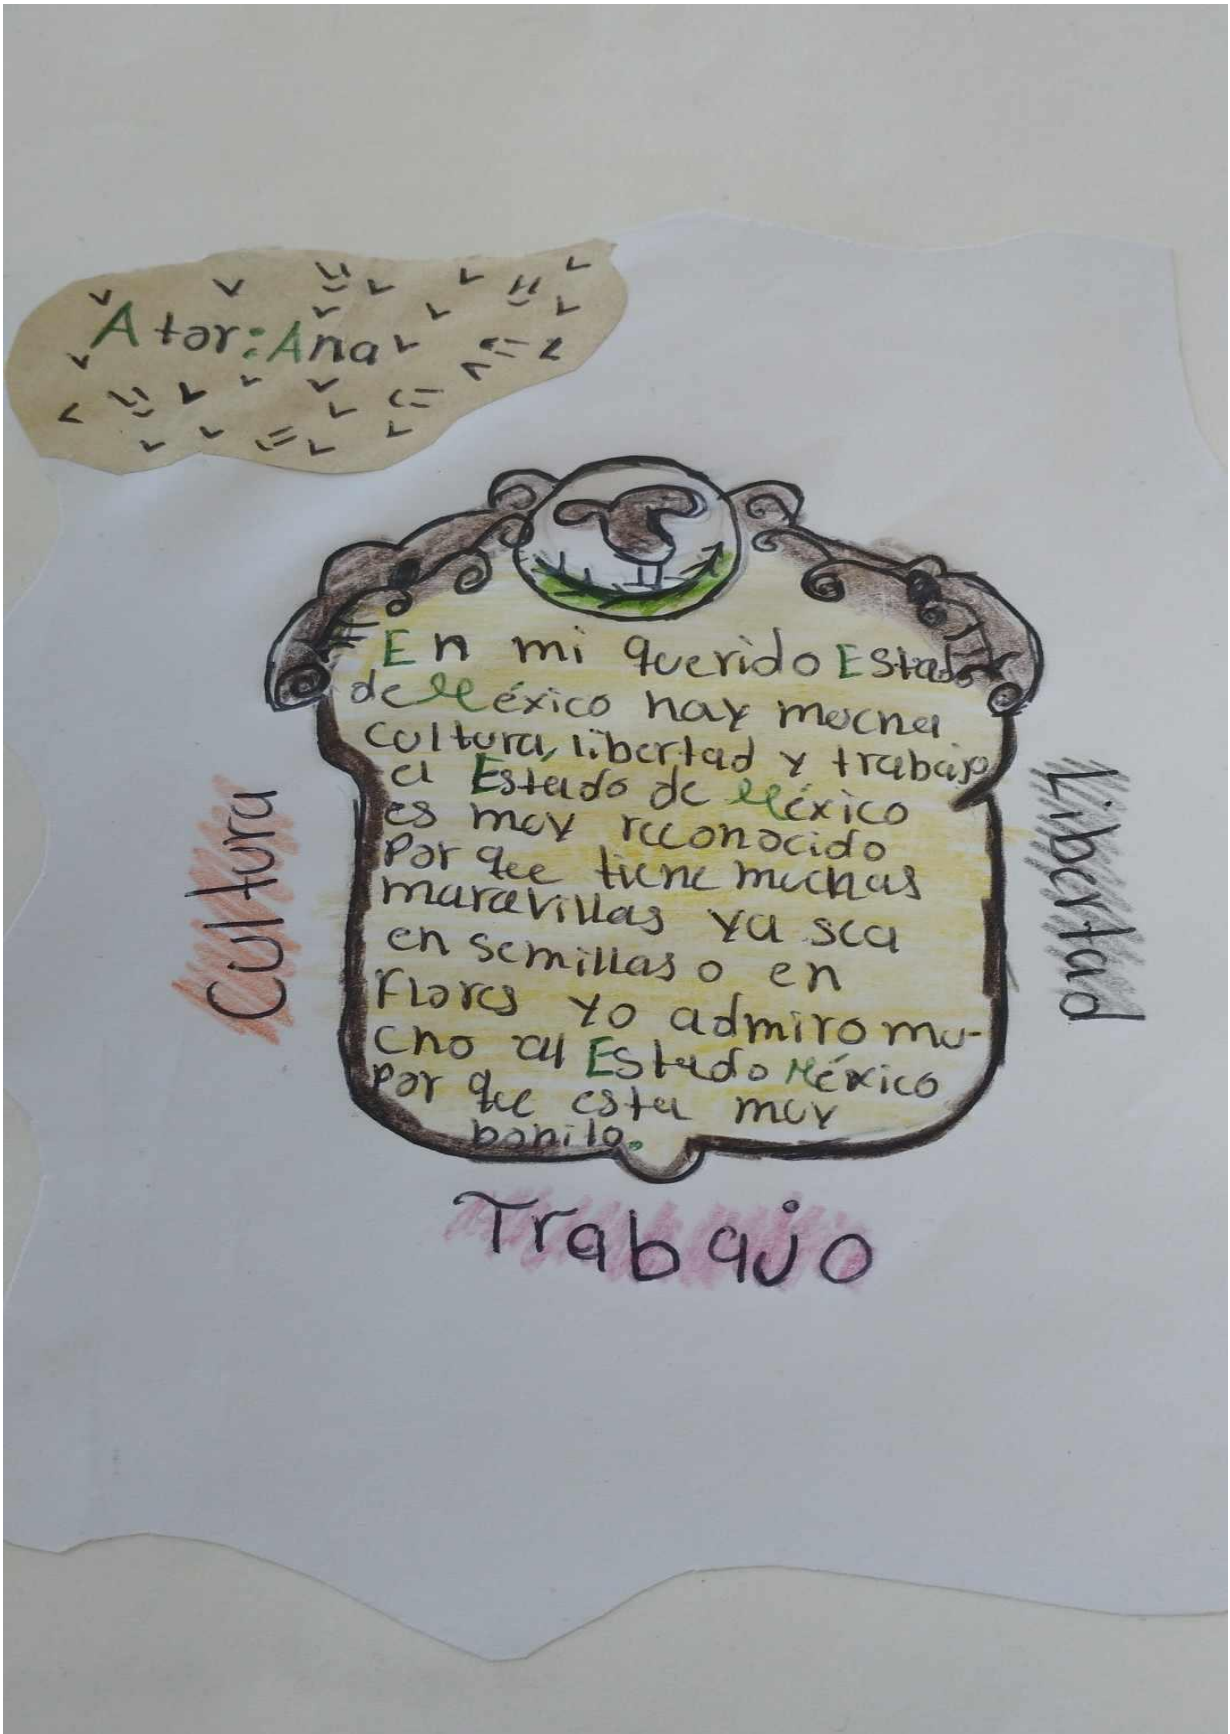 Ator: Ana
En mi querido Estado
de México hay mucha
cultura, libertad y trabajo
el Estado de México
es muy reconocido
por que tiene muchas
maravillas ya sea
en semillas o en
Flores yo admiro mu-
cho al Estado México
por que esta muy
bonito.
Cultura
Libertad
Trabajo